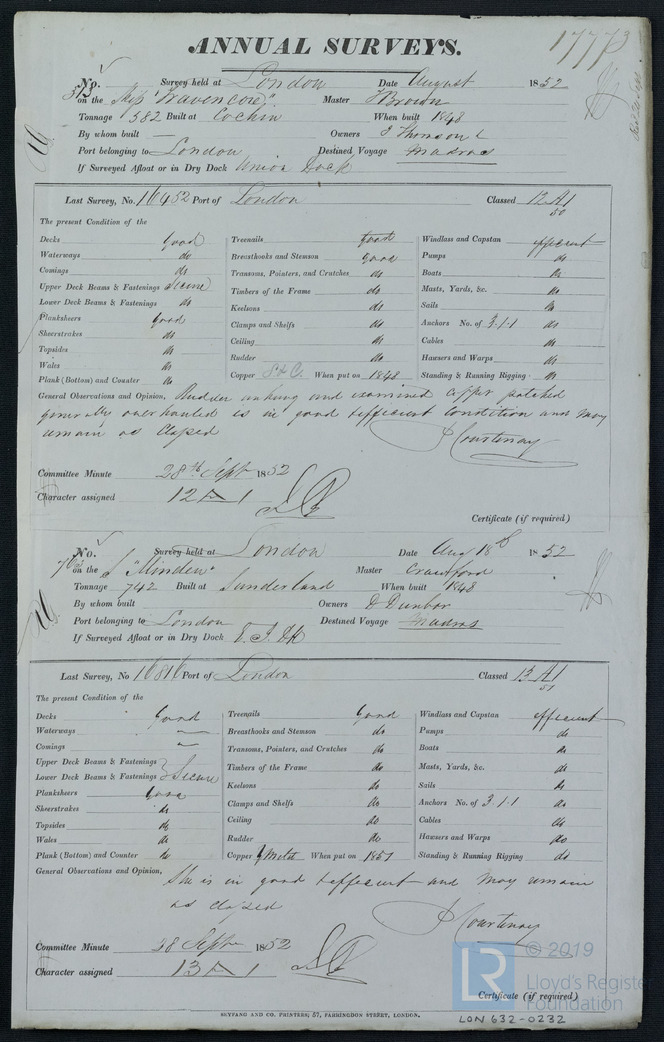 ANNUAL SURVEYS.
17773
No. 513 Survey held at London Date August 1852
on the Ship "Travencore" Master J Brown
Tonnage 582 Built at Cochin When built 1848
By whom built — Owners J Thomson
Port belonging to London Destined Voyage Madras
If Surveyed Afloat or in Dry Dock Union Dock
Last Survey, No. 16452 Port of London Classed 12 A1
50
The present Condition of the
Decks good Treenails good Windlass and Capstan efficient
Waterways do Breasthooks and Stemson good Pumps do
Comings do Transoms, Pointers, and Crutches do Boats do
Upper Deck Beams & Fastenings Secure Timbers of the Frame do Masts, Yards, &c. do
Lower Deck Beams & Fastenings do Keelsons do Sails do
Planksheers good Clamps and Shelfs do Anchors No. of 3.1.1 do
Sheerstrakes do Ceiling do Cables do
Topsides do Rudder do Hawsers and Warps do
Wales do Copper When put on 1848 Standing & Running Rigging do
Plank (Bottom) and Counter do
General Observations and Opinion, Rudder unhung and examined copper patched
generally overhauled is in good & efficient condition and may
remain as Classed
J Courtenay
Committee Minute 28th Sept 1852
Character assigned 12 A 1
Certificate (if required)
No. Survey held at London Date Aug 18th 1852
on the S "Minden" Master Crawford
Tonnage 742 Built at Sunderland When built 1848
By whom built Owners D Dunbar
Port belonging to London Destined Voyage Madras
If Surveyed Afloat or in Dry Dock E. I. Dk
Last Survey, No 16816 Port of London Classed 13 A1
51
The present Condition of the
Decks Good Treenails Good Windlass and Capstan efficient
Waterways — Breasthooks and Stemson do Pumps do
Comings — Transoms, Pointers, and Crutches do Boats do
Upper Deck Beams & Fastenings Timbers of the Frame do Masts, Yards, &c. do
Lower Deck Beams & Fastenings Secure Keelsons do Sails do
Planksheers Good Clamps and Shelfs do Anchors No. of 3.1.1 do
Sheerstrakes do Ceiling do Cables do
Topsides do Rudder do Hawsers and Warps do
Wales do Copper Y Metal When put on 1851 Standing & Running Rigging do
Plank (Bottom) and Counter do
General Observations and Opinion, She is in good & efficient and may remain
as classed
J Courtenay
Committee Minute 28 Septr 1852
Character assigned 13 A 1
Certificate (if required)
SEYFANG AND CO. PRINTERS; 57, FARRINGDON STREET, LONDON.
LON 632-0232
LR
© 2019
Lloyd's Register
Foundation